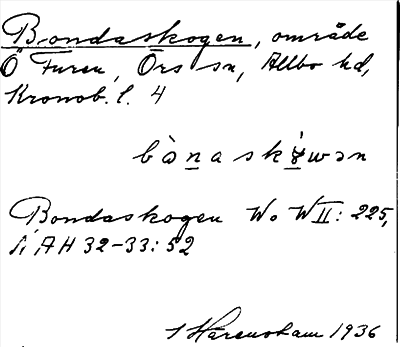 Bondaskogen, område
Ö Furen, Örs sn, Allbo hd,
Kronob. l. 4
bònaskɤ́wən
Bondaskogen Wo WII: 225,
ÄAH 32-33: 52
Harenstam 1936